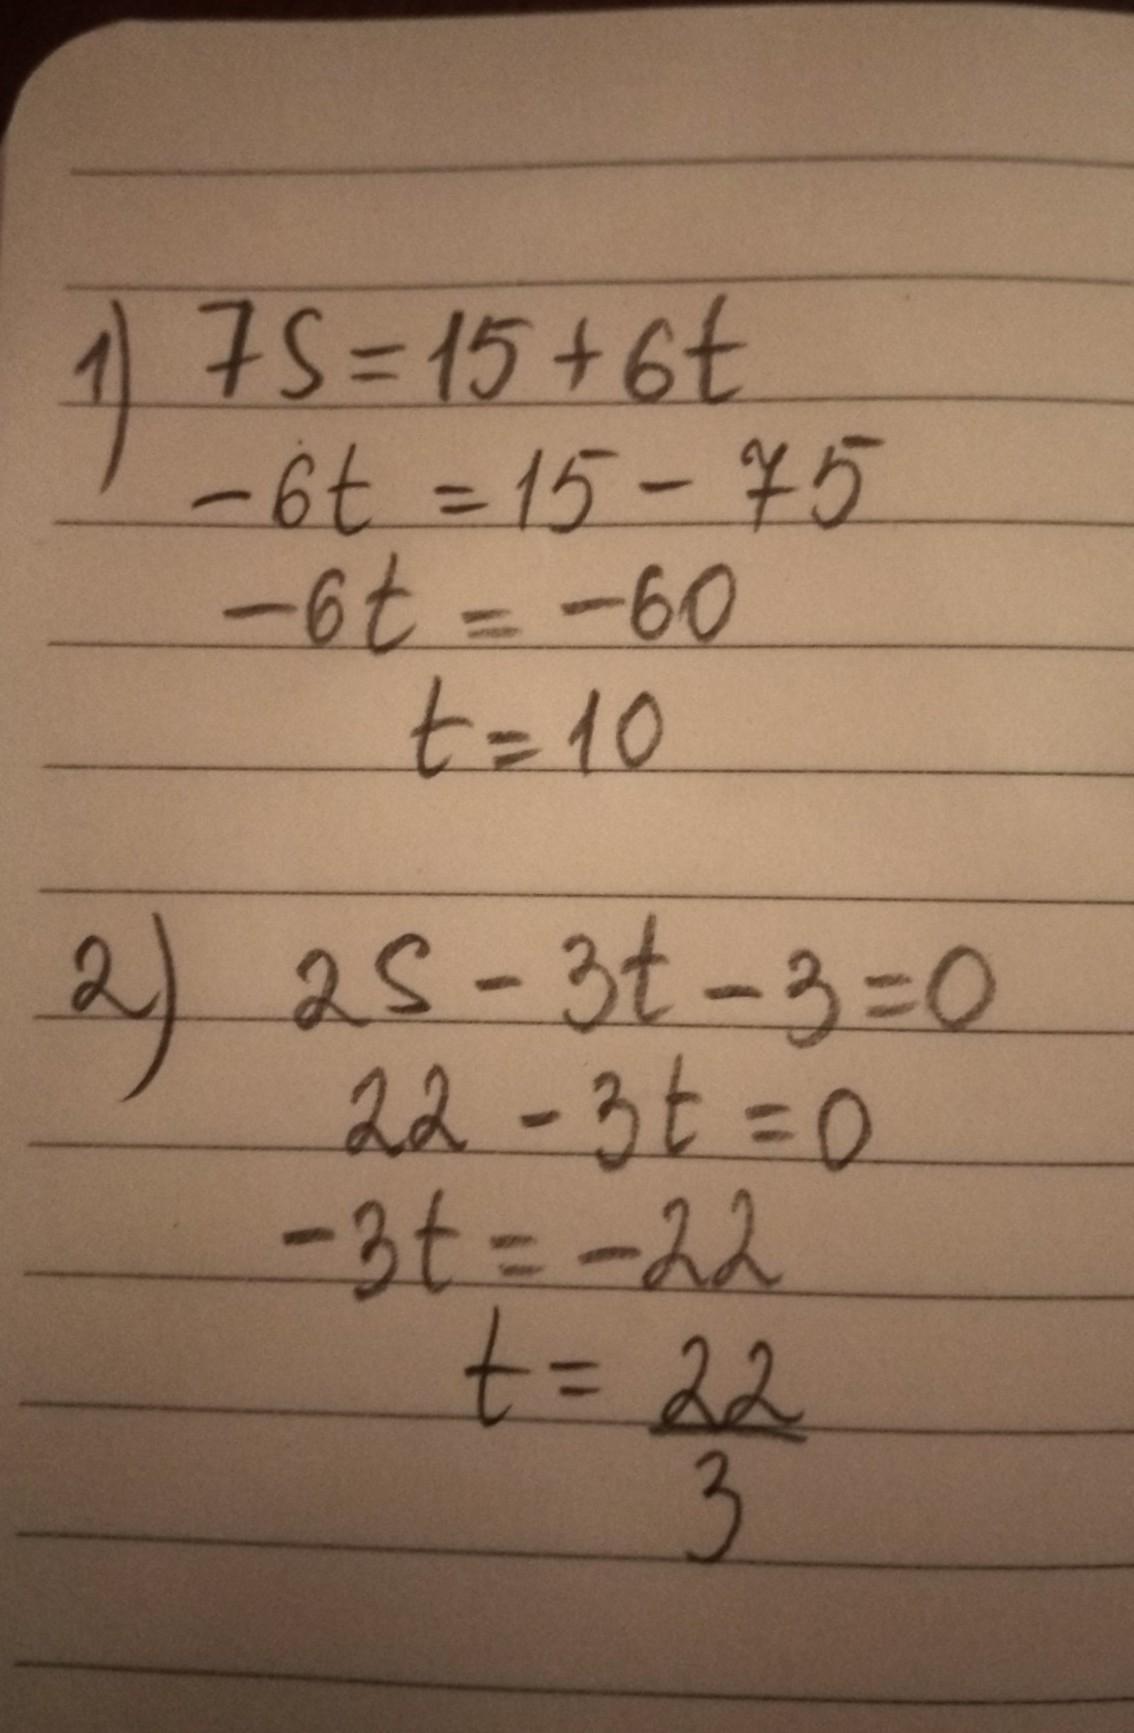 1) 7S=15+6t
-6t=15-75
-6t=-60
t=10
2) 2S-3t-3=0
22-3t=0
-3t=-22
t=22/3